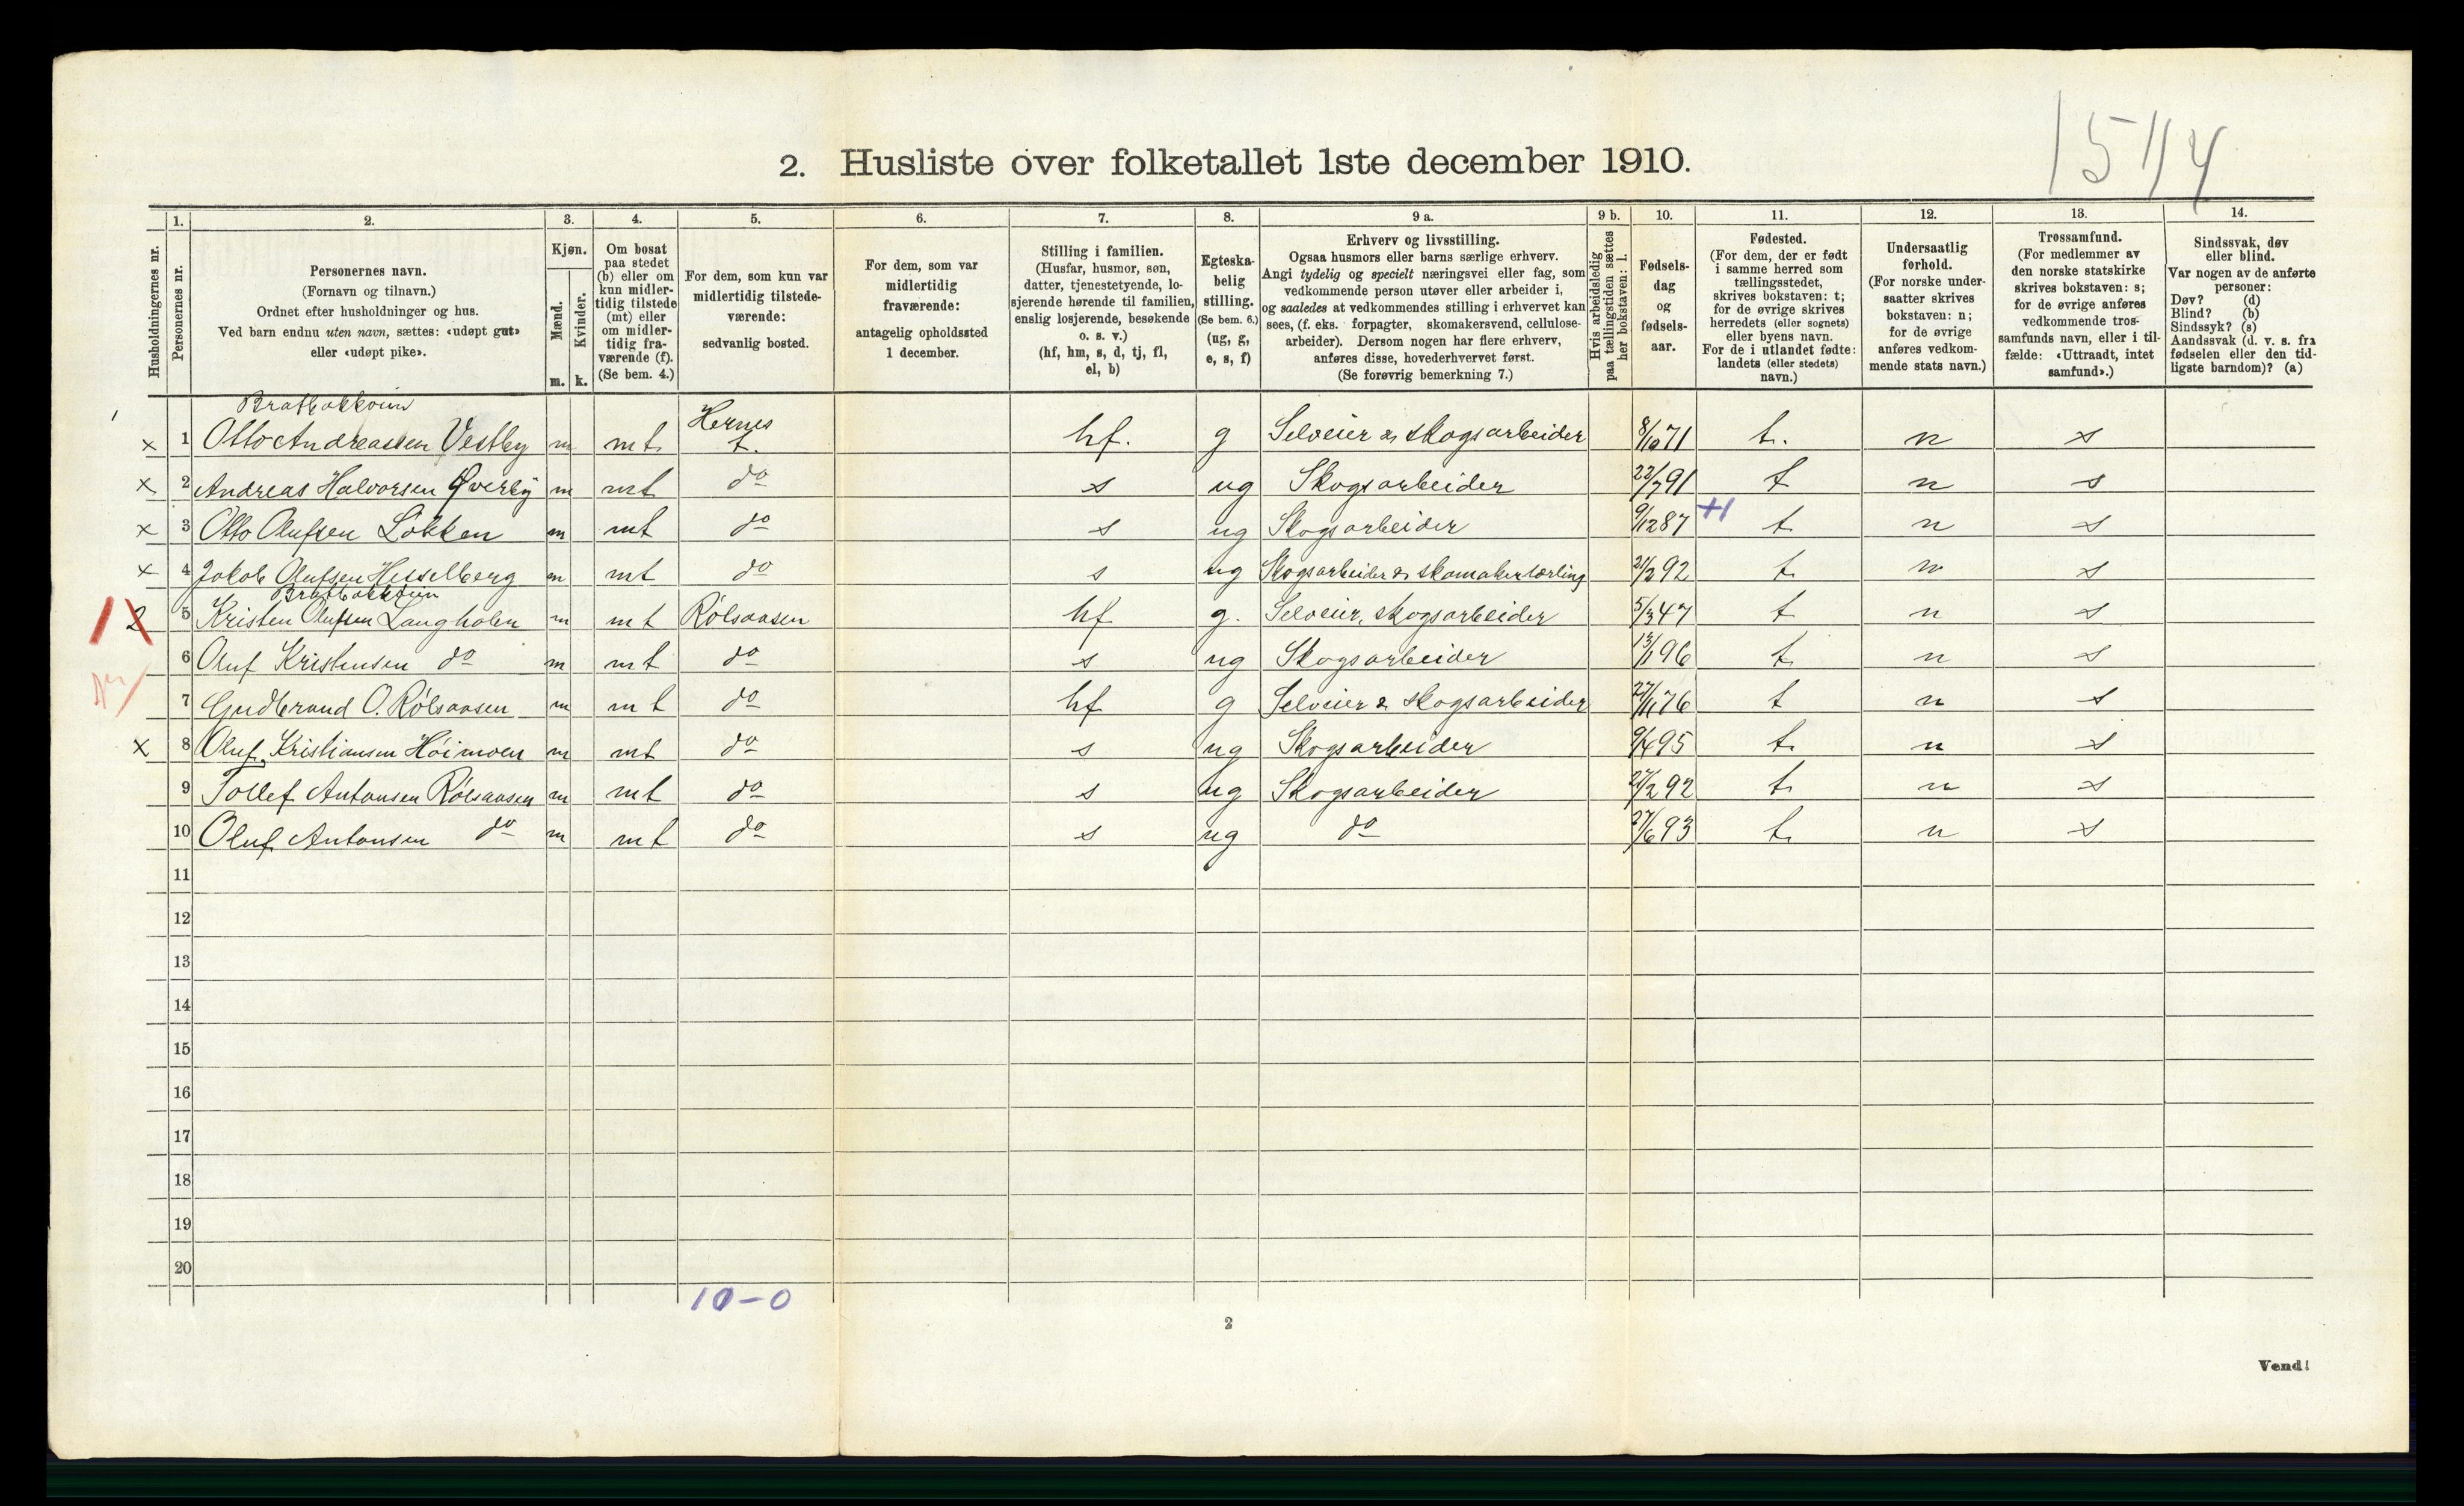 15 1/4
2. Husliste over folketallet 1ste december 1910.
1. 2. 3. 4. 5. 6. 7. 8. 9 a. 9 b. 10. 11. 12. 13. 14.
Husholdningernes nr.
Personernes nr.
Personernes navn.
(Fornavn og tilnavn.)
Ordnet efter husholdninger og hus.
Ved barn endnu uten navn, sættes: «udøpt gut»
eller «udøpt pike».
Kjøn.
Mænd.
Kvinder.
m. k.
Om bosat
paa stedet
(b) eller om
kun midler-
tidig tilstede
(mt) eller
om midler-
tidig fra-
værende (f).
(Se bem. 4.)
For dem, som kun var
midlertidig tilstede-
værende:
sedvanlig bosted.
For dem, som var
midlertidig
fraværende:
antagelig opholdssted
1 december.
Stilling i familien.
(Husfar, husmor, søn,
datter, tjenestetyende, lo-
sjerende hørende til familien,
enslig losjerende, besøkende
o. s. v.)
(hf, hm, s, d, tj, fl,
el, b)
Egteska-
belig
stilling.
(Se bem. 6.)
(ug, g,
e, s, f)
Erhverv og livsstilling.
Ogsaa husmors eller barns særlige erhverv.
Angi tydelig og specielt næringsvei eller fag, som
vedkommende person utøver eller arbeider i,
og saaledes at vedkommendes stilling i erhvervet kan
sees, (f. eks. : forpagter, skomakersvend, cellulose-
arbeider). Dersom nogen har flere erhverv,
anføres disse, hovederhvervet først.
(Se forøvrig bemerkning 7.)
Hvis arbeidsledig
paa tællingstiden sættes
her bokstaven: l.
Fødsels-
dag
og
fødsels-
aar.
Fødested.
(For dem, der er født
i samme herred som
tællingsstedet,
skrives bokstaven: t;
for de øvrige skrives
herredets (eller sognets)
eller byens navn.
For de i utlandet fødte:
landets (eller stedets)
navn.)
Undersaatlig
forhold.
(For norske under-
saatter skrives
bokstaven: n;
for de øvrige
anføres vedkom-
mende stats navn.)
Trossamfund.
(For medlemmer av
den norske statskirke
skrives bokstaven: s;
for de øvrige anføres
vedkommende tros-
samfunds navn, eller i til-
fælde: «Uttraadt, intet
samfund».)
Sindssvak, døv
eller blind.
Var nogen av de anførte
personer:
Døv? (d)
Blind? (b)
Sindssyk? (s)
Aandssvak (d. v. s. fra
fødselen eller den tid-
ligste barndom)? (a)
Hernes
x 1 Otto Andreassen Vestby m mt t. hf. g Selveier & skogsarbeider 8/10 71 t. n s
x 2 Andreas Halvorsen Øverby m mt do s ug Skogsarbeider 22/7 91 t n s
x 3 Otto Olufsen Løkken m mt do s ug Skogsarbeider 9/12 87 t n s
x 4 Jakob Olufsen Hesselberg m mt do s ug Skogsarbeider & skomakerlærling 21/2 92 t n s
2 5 Kristen Olufsen Langholen m mt Rølsaasen hf g. Selveier, skogsarbeider 5/3 47 t n s
6 Oluf Kristensen do m mt do s ug Skogsarbeider 13/1 96 t n s
7 Gudbrand O. Rølsaasen m mt do hf g Selveier & skogsarbeider 27/11 76 t n s
x 8 Oluf Kristiansen Høimoen m mt do s ug Skogsarbeider 9/4 95 t n s
9 Tollef Antonsen Rølsaasen m mt do s ug Skogsarbeider 27/2 92 t n s
10 Oluf Antonsen do m mt do s ug do 27/6 93 t n s
11
12
13
14
15
16
17
18
19
20
10-0
2
Vend!